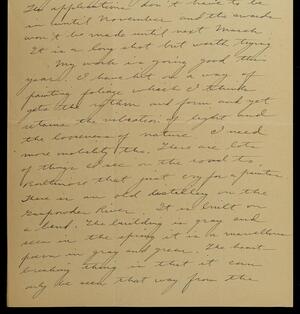 The applications don't have to be
in until November and the awards
won't be made until next March.
It is a long shot but worth trying
My work is going good this
year. I have hit on a way of
painting foliage which I think
gets the rythm and form and yet
retains the vibration of light and
the looseness of nature. I need
more mobility tho. There are lots
of things close on the road to
Baltimore that just cry for a painter
There is an old distillery on the
Gunpowder River. It is built on
a bend. The building is gray and
seen in the spring it is a marvellous
poem in gray and green. The heart
breaking thing is that it can
only be seen that way from the